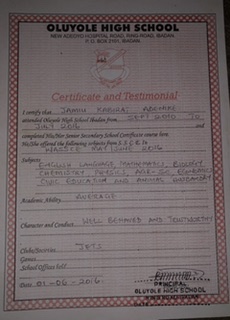 OLUYOLE HIGH SCHOOL
NEW ADEOYO HOSPITAL ROAD, RING ROAD, IBADAN.
P.O. BOX 2151, IBADAN.
Certificate and Testimonial
I certify that
attended Oluyole High School Ibadan from SEPT 2010 TO
JULY 2016 and
completed His/Her Senior Secondary School Certificate course here.
He/She offered the following subjects from S.S.C.E. in
Subjects
ENGLISH LANGUAGE, MATHEMATICS, BIOLOGY
CHEMISTRY, PHYSICS, AGRIC SC, ECONOMICS
CIVIC EDUCATION AND ANIMAL HUSBANDRY
Academic Ability AVERAGE
Character and Conduct WELL BEHAVED AND TRUSTWORTHY
Clubs/Societies JETS
Games
School Offices held
Date 01-06-2016
PRINCIPAL
OLUYOLE HIGH SCHOOL